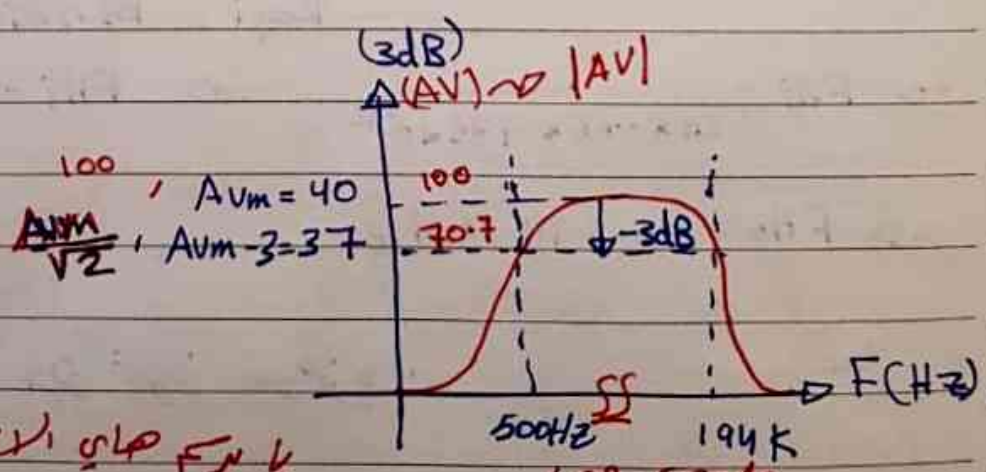 (3dB)
(AV) |AV|
100 , Avm = 40 100
Avm/√2 , Avm-3=37 70.7 -3dB
F(Hz)
500Hz 194K